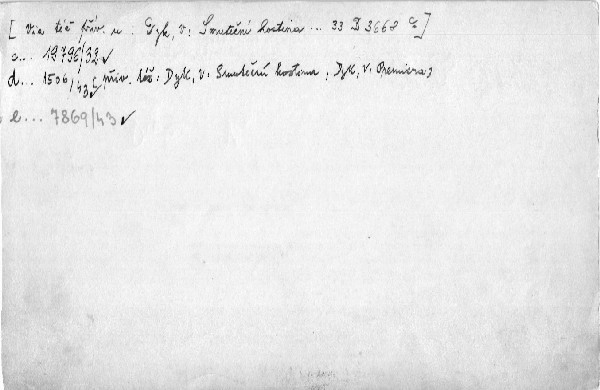 [ Viz též přív. u : Dyk, V: Smuteční hostina ... 33 D 3668 č]
c... 12796/32 ✓
d... 1506/43 ✓ [přiv. též: Dyk, V: Smuteční hostina ; Dyk, V. Premiera]
e... 7869/43 ✓